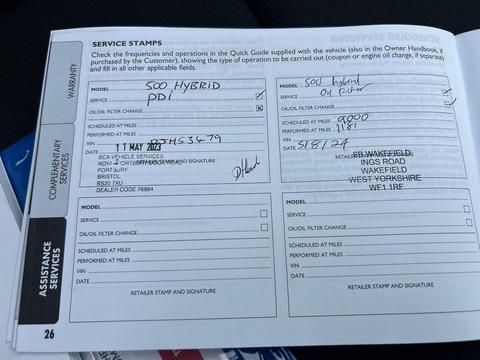 SERVICE STAMPS
Check the frequencies and operations in the Quick Guide supplied with the vehicle (also in the Owner Handbook, if
purchased by the Customer), showing the type of operation to be carried out (coupon or engine oil change, if separate)
and fill in all other applicable fields.
WARRANTY
COMPLEMENTARY
SERVICES
ASSISTANCE
SERVICES
MODEL 500 HYBRID
SERVICE PDi
OIL/OIL FILTER CHANGE
SCHEDULED AT MILES
PERFORMED AT MILES
VIN
DATE 11 MAY 2023
BCA VEHICLE SERVICES
PORTBURY
BRISTOL
BS20 7XU
DEALER CODE 76664
MODEL 500 hybrid
SERVICE Oil filter
OIL/OIL FILTER CHANGE
SCHEDULED AT MILES 9000
PERFORMED AT MILES 1181
VIN
DATE 5/8/24
SB WAKEFIELD
INGS ROAD
WAKEFIELD
WEST YORKSHIRE
WF1 1RF
MODEL
SERVICE
OIL/OIL FILTER CHANGE
SCHEDULED AT MILES
PERFORMED AT MILES
VIN
DATE
RETAILER STAMP AND SIGNATURE
MODEL
SERVICE
OIL/OIL FILTER CHANGE
SCHEDULED AT MILES
PERFORMED AT MILES
VIN
DATE
RETAILER STAMP AND SIGNATURE
26